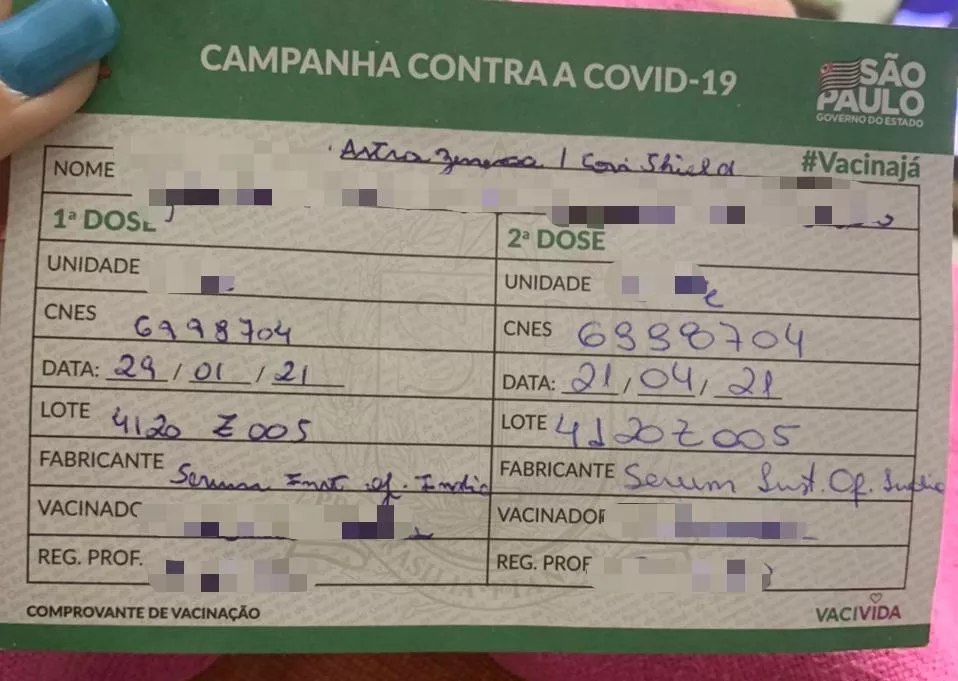 CAMPANHA CONTRA A COVID-19
SÃO
PAULO
GOVERNO DO ESTADO
#Vacinajá
NOME Astra Zeneca / Covi Shield
1ª DOSE
UNIDADE
CNES 6998704
DATA: 29/01/21
LOTE 4120 Z005
FABRICANTE Serum Inst. of. India
VACINADO
REG. PROF.
2ª DOSE
UNIDADE
CNES 6998704
DATA: 21/04/21
LOTE 4120Z005
FABRICANTE Serum Inst. Of. India
VACINADOR
REG. PROF
COMPROVANTE DE VACINAÇÃO
VACIVIDA